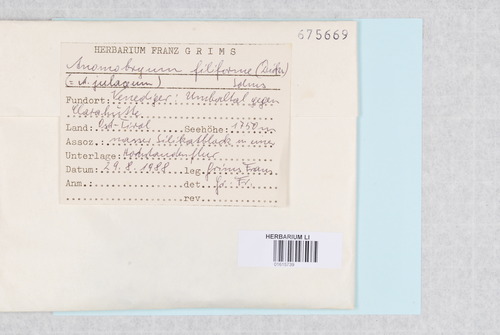 675669
HERBARIUM FRANZ GRIMS
Anomobryum filiforme (Dicks)
(= A. julaceum) Solms
Fundort: Venediger: Umbaltal gegen
Clarahütte
Land: Ost-Tirol Seehöhe: 1750 m
Assoz. nasser Silikatblock in einer
Unterlage: Hochstaudenflur
Datum: 29.8.1988 leg. Grims Franz
Anm.: det. Gr. Fr.
rev.
HERBARIUM LI